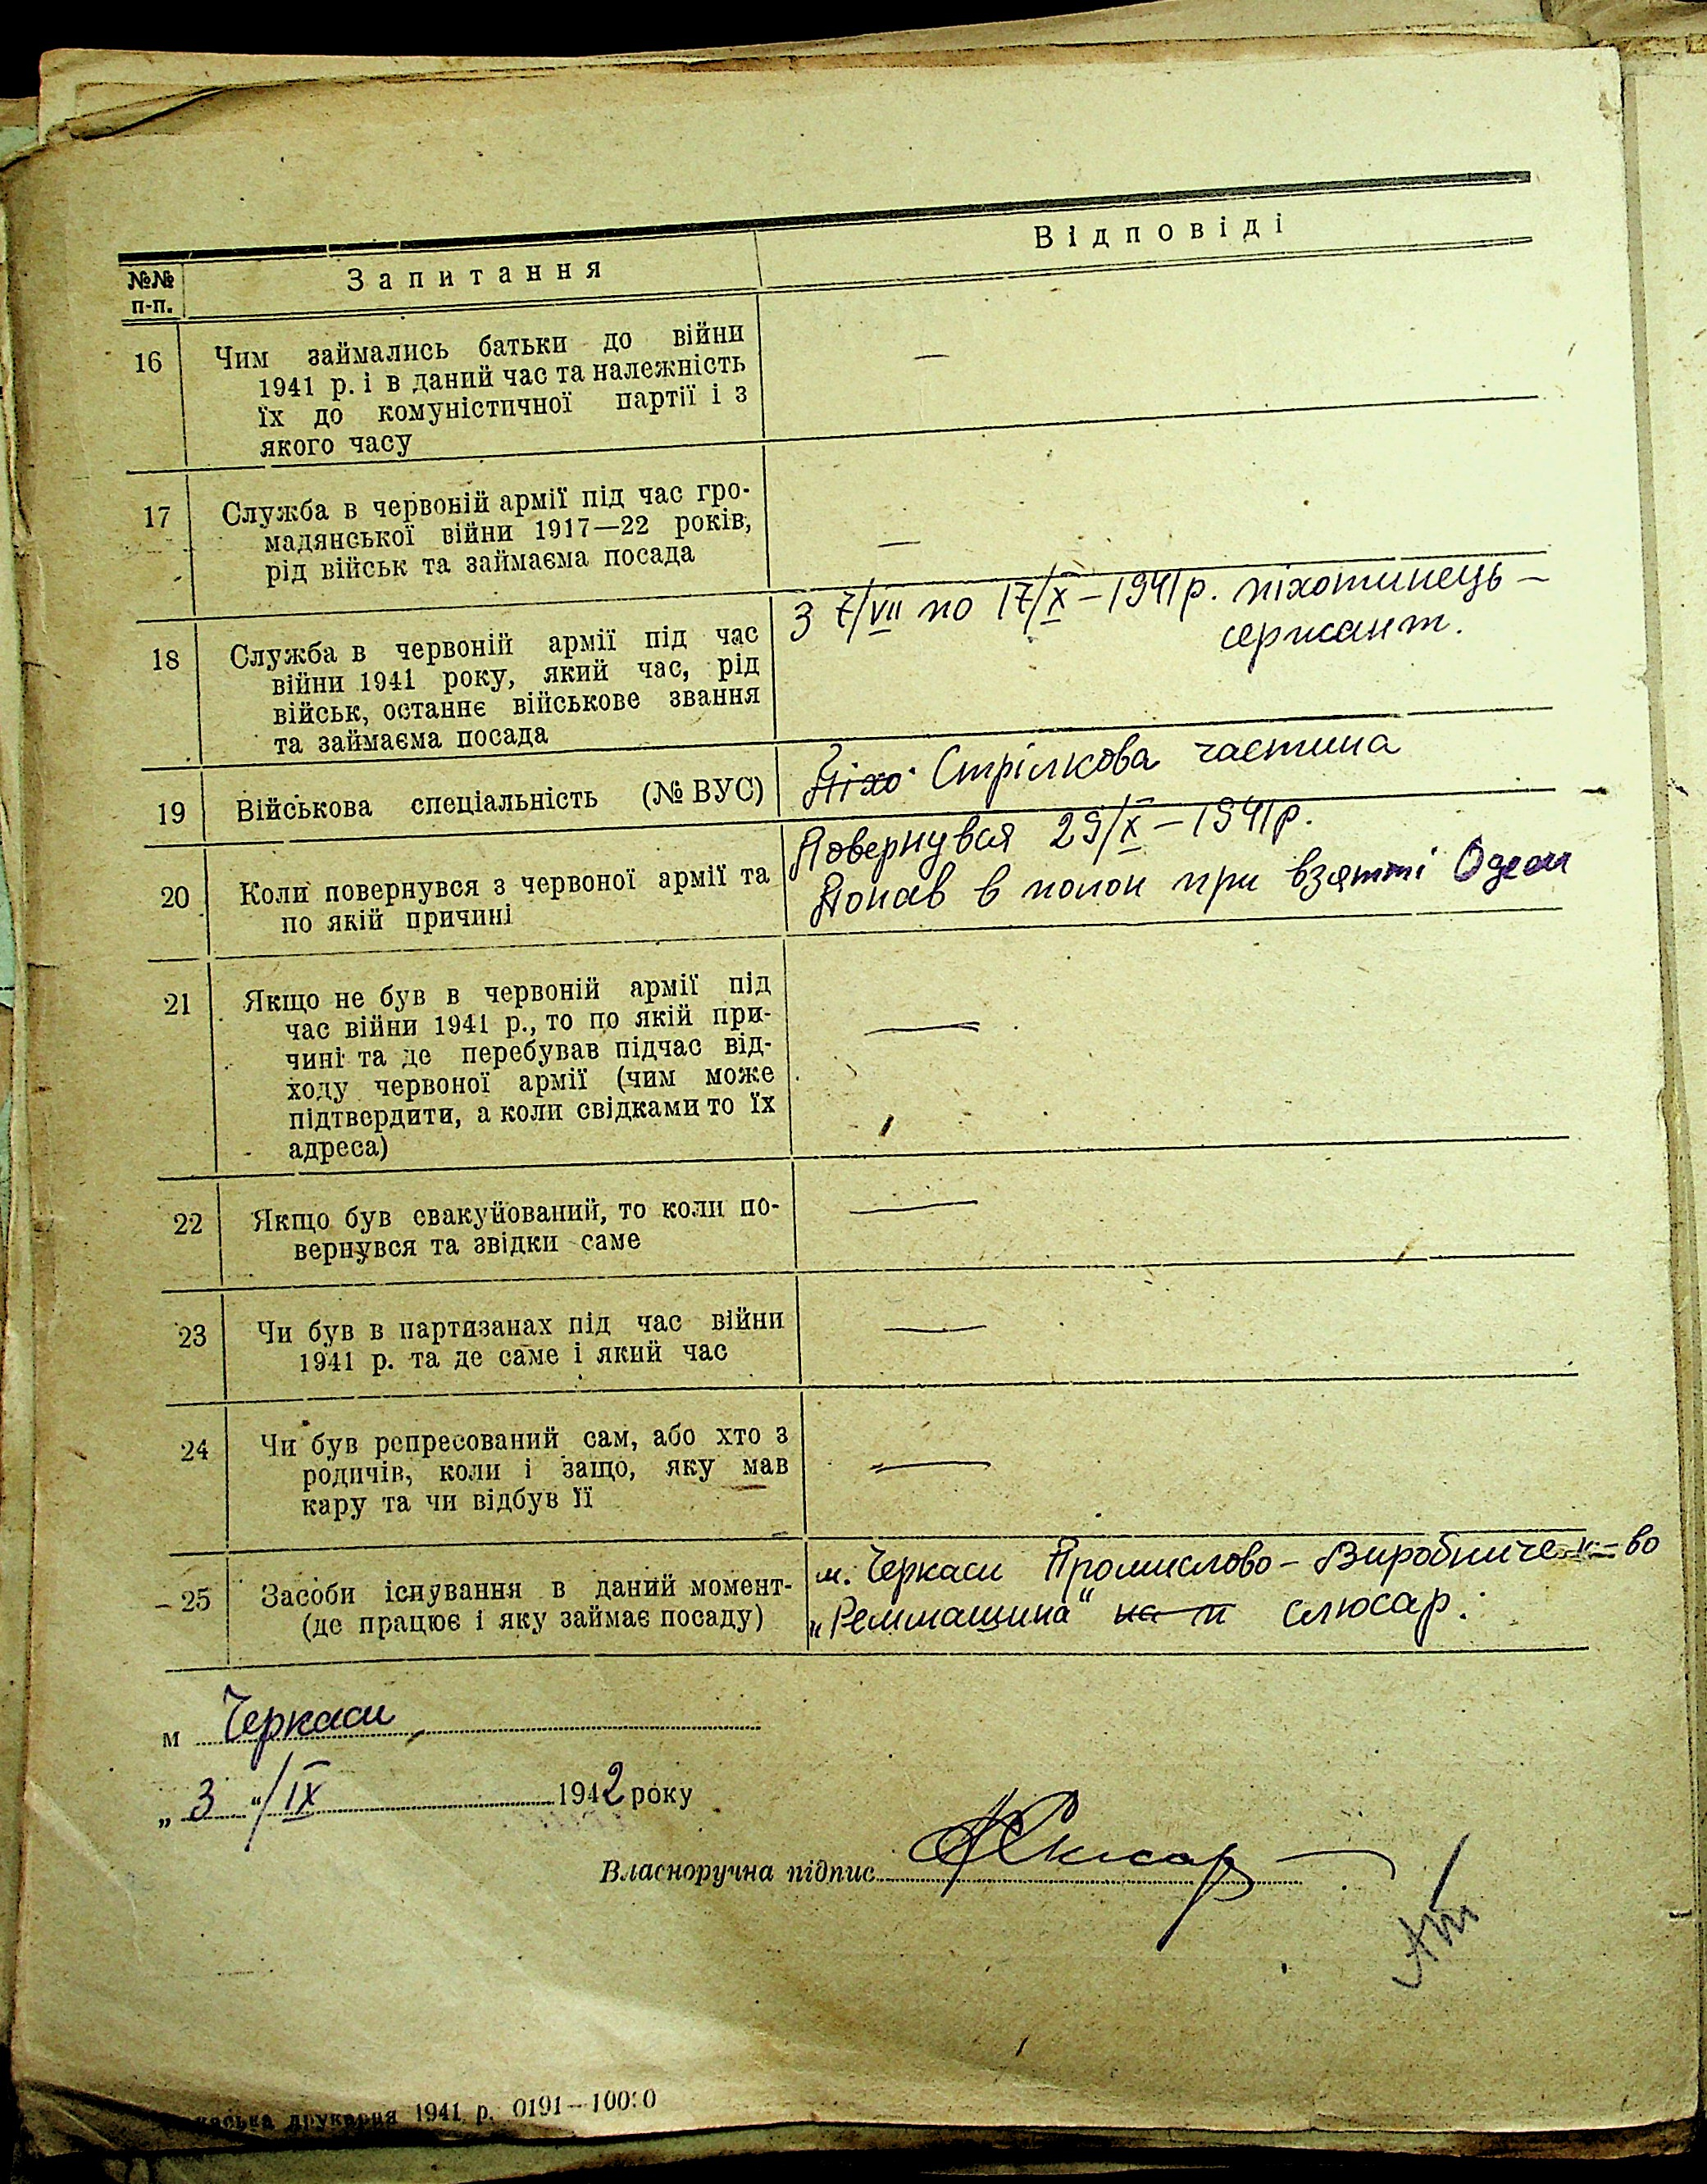 №№ п-п.
Запитання
Відповіді
16
Чим займались батьки до війни
1941 р. і в даний час та належність
їх до комуністичної партії і з
якого часу
—
17
Служба в червоній армії під час гро-
мадянської війни 1917—22 років,
рід військ та займаєма посада
—
18
Служба в червоній армії під час
війни 1941 року, який час, рід
військ, останнє військове звання
та займаєма посада
З 7/VII по 17/X – 1941 р. піхотинець –
сержант.
19
Військова спеціальність (№ ВУС)
Піхо. Стрілкова частина
20
Коли повернувся з червоної армії та
по якій причині
Повернувся 29/X – 1941 р.
Попав в полон при взятті Одеси
21
Якщо не був в червоній армії під
час війни 1941 р., то по якій при-
чині та де перебував підчас від-
ходу червоної армії (чим може
підтвердити, а коли свідками то їх
адреса)
—
22
Якщо був евакуйований, то коли по-
вернувся та звідки саме
—
23
Чи був в партизанах під час війни
1941 р. та де саме і який час
—
24
Чи був репресований сам, або хто з
родичів, коли і защо, яку мав
кару та чи відбув її
—
25
Засоби існування в даний момент-
(де працює і яку займає посаду)
м. Черкаси Промислово – Виробниче к-во
„Реммашина“ на п слюсар.
м Черкаси
„3“/IX 1942 року
Власноручна підпис
друкарня 1941 р. 0191—100